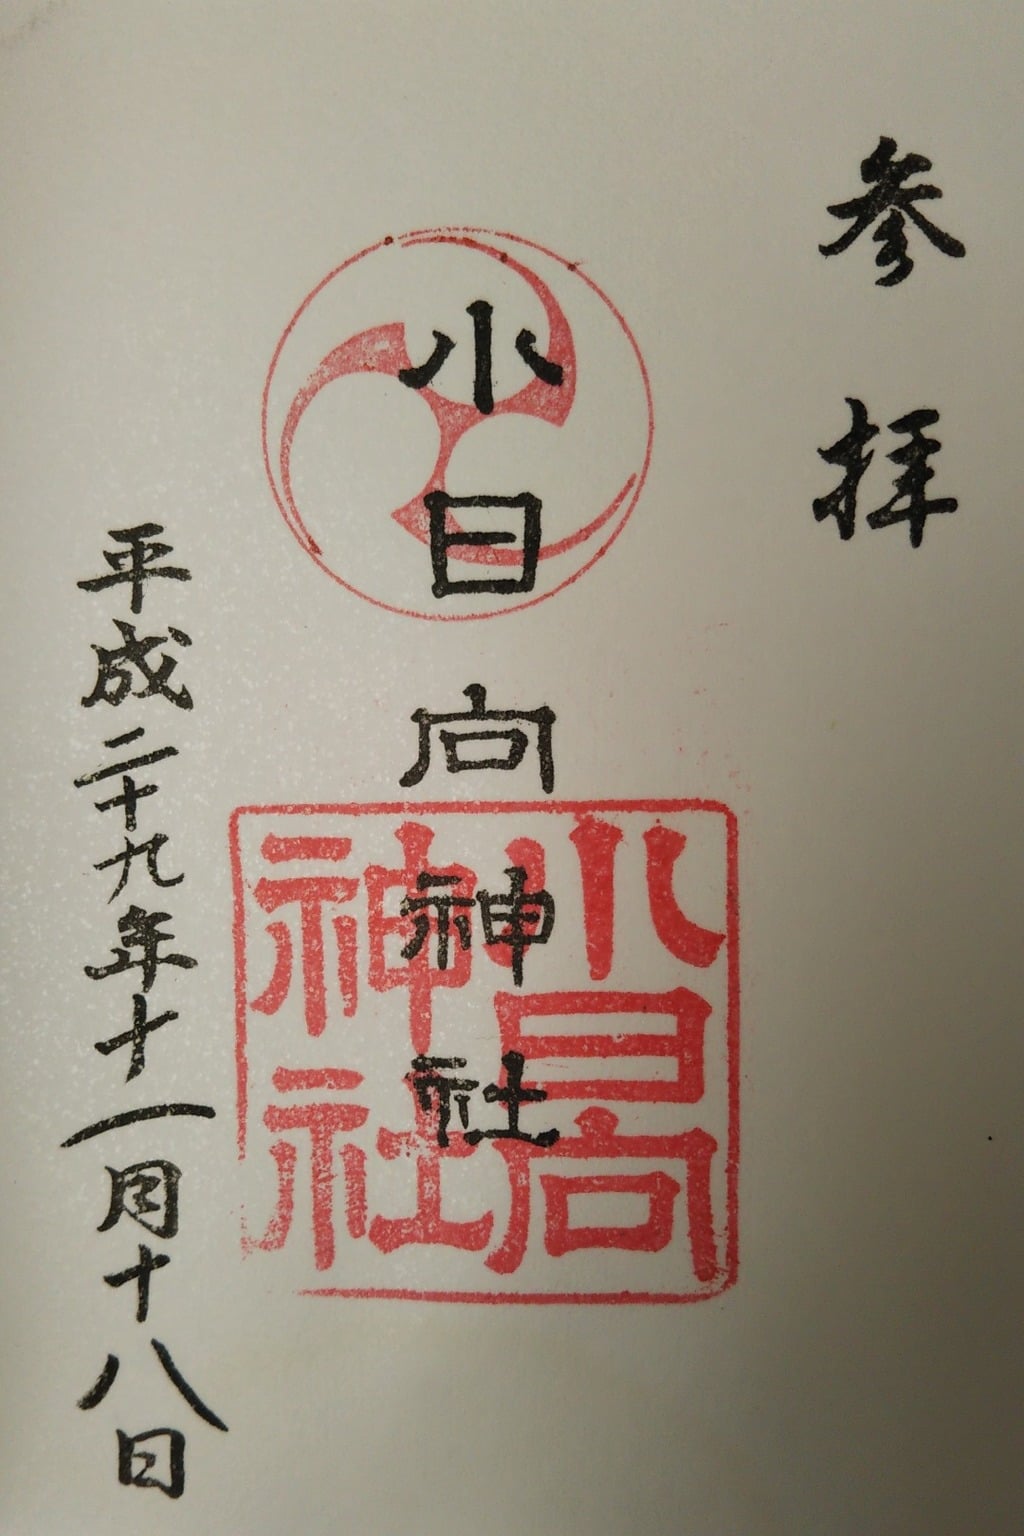 参拝
小日向神社
小日向
神社
平成二十九年十一月十八日